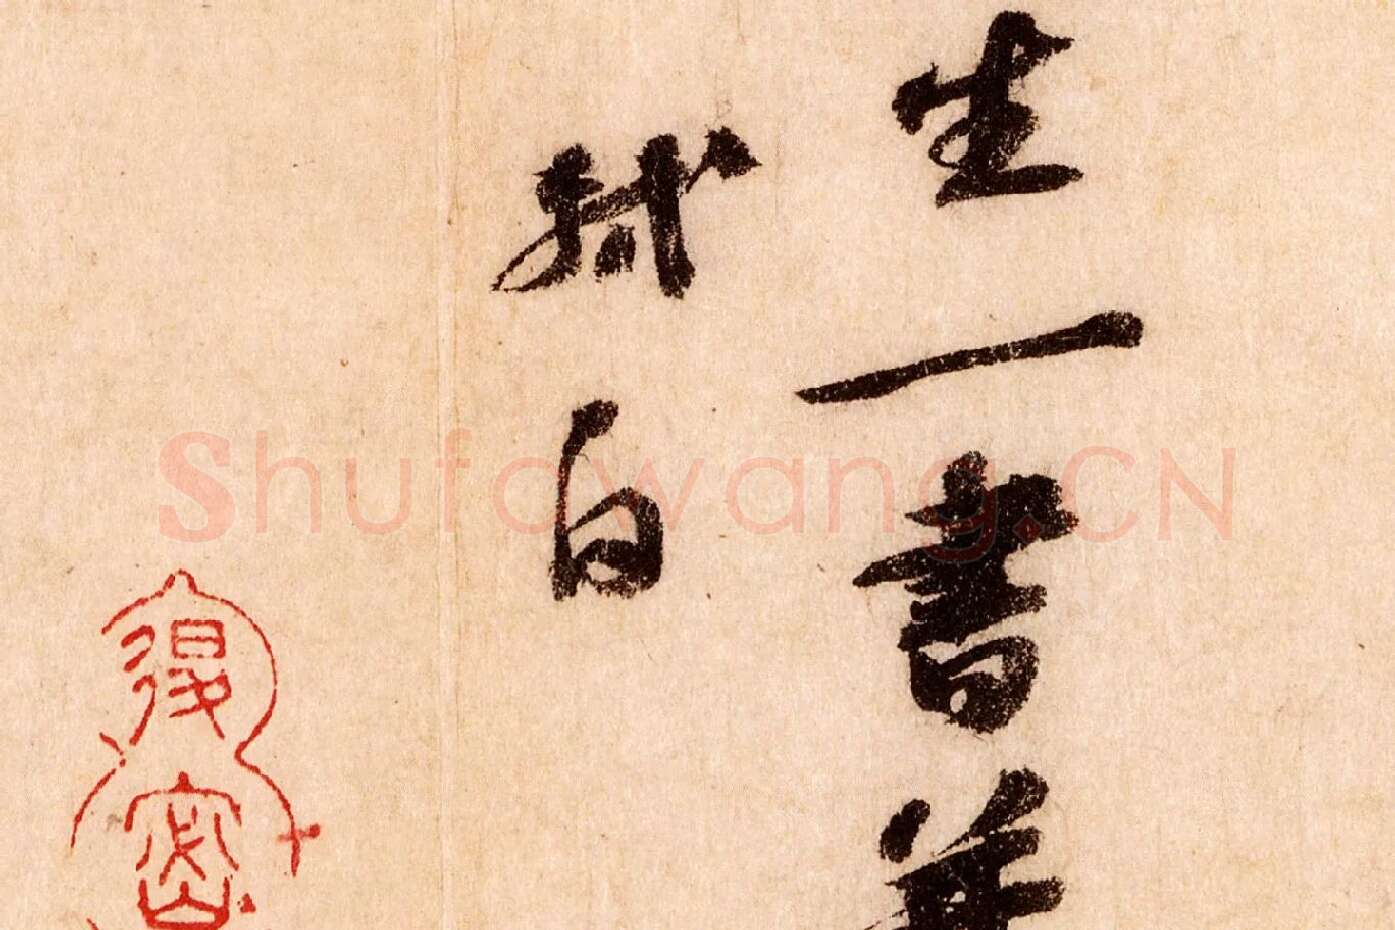 生一書
軾白
密
Shufawang.CN